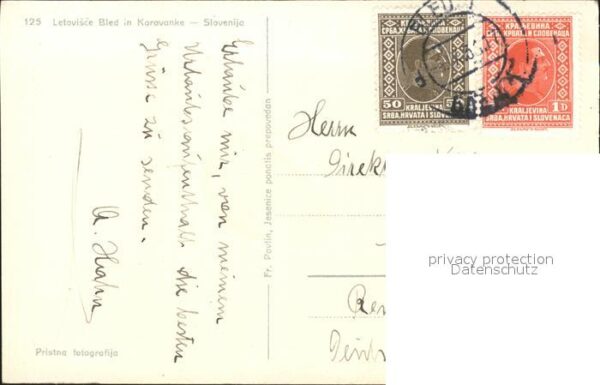 125 Letovišče Bled in Karavanke — Slovenija
Erlaube mir, von meinem
Urlaubsaufenthalt die besten
Grüsse zu senden.
A. Hahn
Pristna fotografija
Fr. Pavlin, Jesenice ponatis prepovedan
КРАЉЕВИНА
СРБА, ХРВАТА И СЛОВЕНАЦА
50
KRALJEVINA
SRBA, HRVATA I SLOVENACA
КРАЉЕВИНА
СРБА, ХРВАТА И СЛОВЕНАЦА
1D
KRALJEVINA
SRBA, HRVATA I SLOVENACA
BLED
Herrn
Direk
privacy protection
Datenschutz